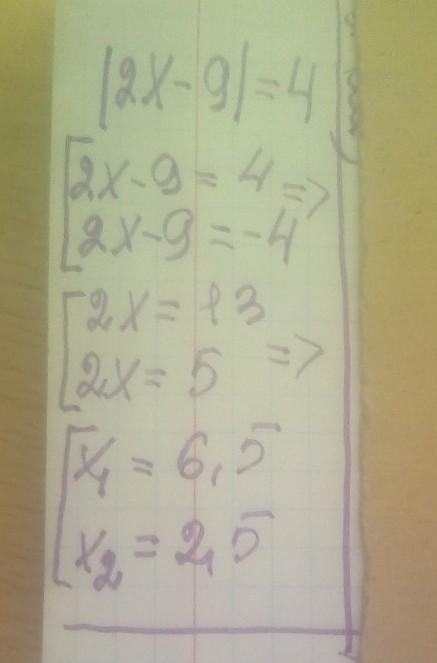 |2x-9|=4
[2x-9=4 =>
2x-9=-4
[2x=13
2x=5 =>
[x₁=6,5
x₂=2,5